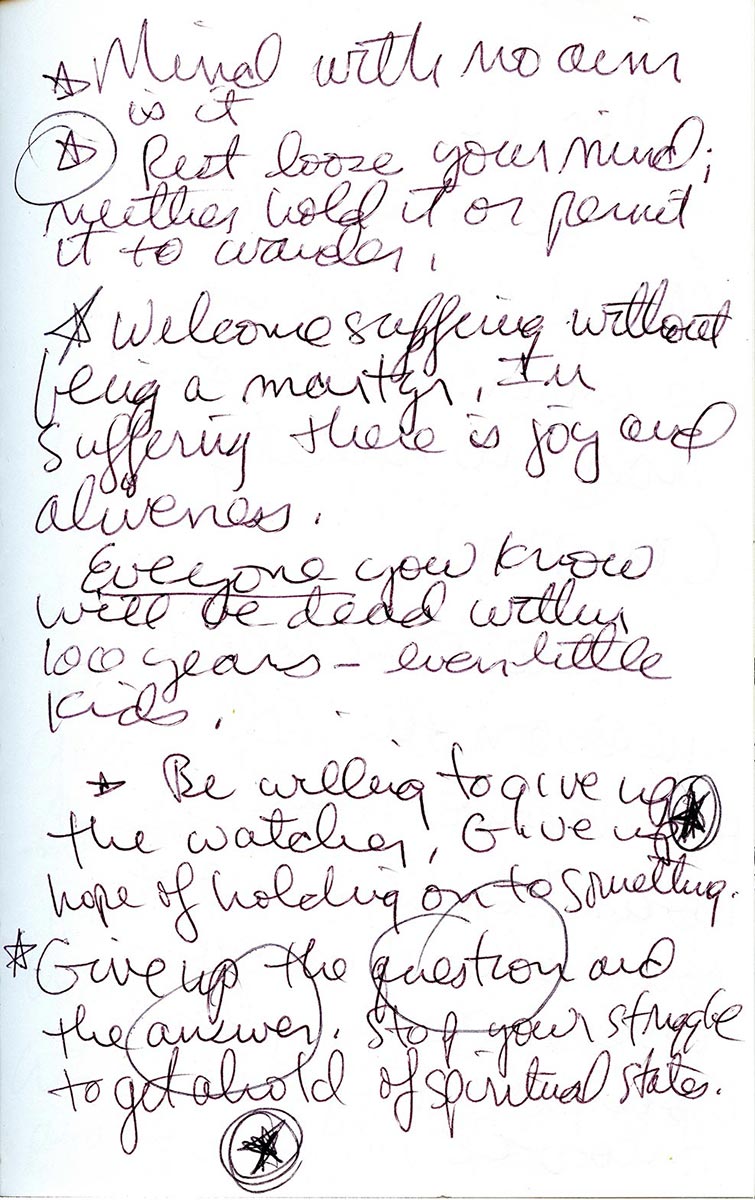 Mind with no aim
is it
Rest loose your mind;
neither hold it or permit
it to wander.
Welcome suffering without
being a martyr. In
suffering there is joy and
aliveness.
Everyone you know
will be dead within
100 years – even little
kids.
Be willing to give up
the watcher, Give up
hope of holding on to something.
Give up the question and
the answer. Stop your struggle
to get ahold of spiritual states.